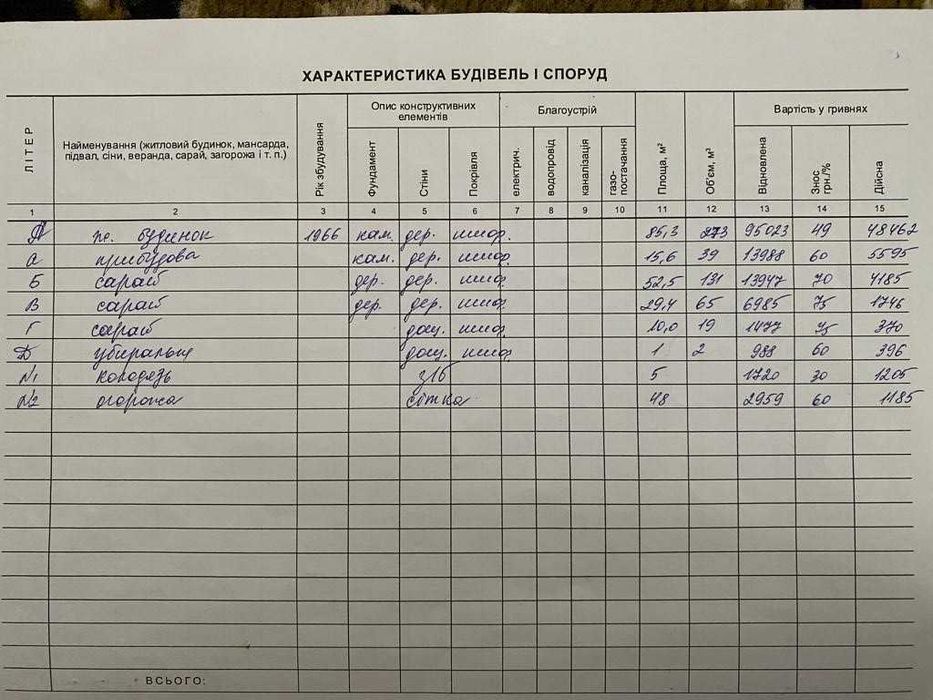 ХАРАКТЕРИСТИКА БУДІВЕЛЬ І СПОРУД
ЛІТЕР
Найменування (житловий будинок, мансарда, підвал, сіни, веранда, сарай, загорожа і т. п.)
Рік збудування
Опис конструктивних елементів
Фундамент
Стіни
Покрівля
Благоустрій
електрич.
водопровід
каналізація
газо-постачання
Площа, м²
Об'єм, м³
Вартість у гривнях
Відновлена
Знос грн./%
Дійсна
1 2 3 4 5 6 7 8 9 10 11 12 13 14 15
А ж. будинок 1966 кам. дер. шифр. 85,3 273 95023 49 48462
а прибудова кам. дер. шифр. 15,6 39 13988 60 5595
Б сарай дер. дер. шифр. 52,5 131 13947 70 4185
В сарай дер. дер. шифр. 29,4 65 6985 75 1746
Г сарай дощ. шифр. 10,0 19 1477 75 370
Д убиральня дощ. шифр. 1 2 988 60 396
№1 колодязь з/б 5 1720 30 1205
№2 огорожа сітка 48 2959 60 1185
ВСЬОГО: